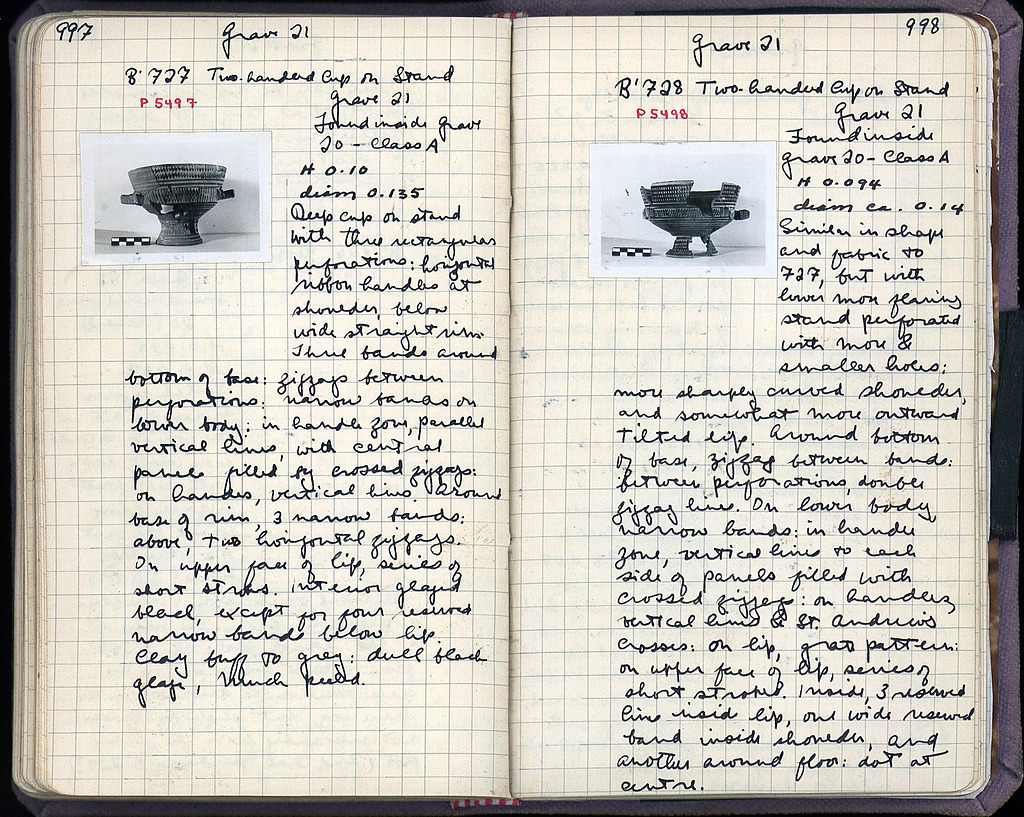 997
Grave 21
B' 727 Two-handled Cup on Stand
P 5497
Grave 21
Found inside Grave
20 - Class A
H 0.10
diam 0.135
Deep cup on stand
with three rectangular
perforations: horizontal
ribbon handles at
shoulder, below
wide straight rim.
Three bands around
bottom of base: zigzags between
perforations: narrow bands on
lower body: in handle zone, parallel
vertical lines, with central
panels filled by crossed zigzags:
on handles, vertical lines. Around
base of rim, 3 narrow bands:
above, two horizontal zigzags.
On upper face of lip, series of
short strokes. Interior glazed
black, except for four reserved
narrow bands below lip.
Clay buff to grey: dull black
glaze, much peeled.
998
Grave 21
B' 728 Two-handled Cup on Stand
P 5498
Grave 21
Found inside
grave 20 - Class A
H 0.094
diam ca. 0.14
Similar in shape
and fabric to
727, but with
lower more flaring
stand perforated
with more &
smaller holes:
more sharply curved shoulder,
and somewhat more outward
tilted lip. Around bottom
of base, zigzag between bands:
between perforations, double
zigzag lines. On lower body
narrow bands: in handle
zone, vertical lines to each
side of panels filled with
crossed zigzag: on handles,
vertical lines & St. Andrew's
crosses: on lip, grat pattern:
on upper face of lip, series of
short strokes. Inside, 3 reserved
lines inside lip, one wide reserved
band inside shoulder, and
another around floor: dot at
centre.